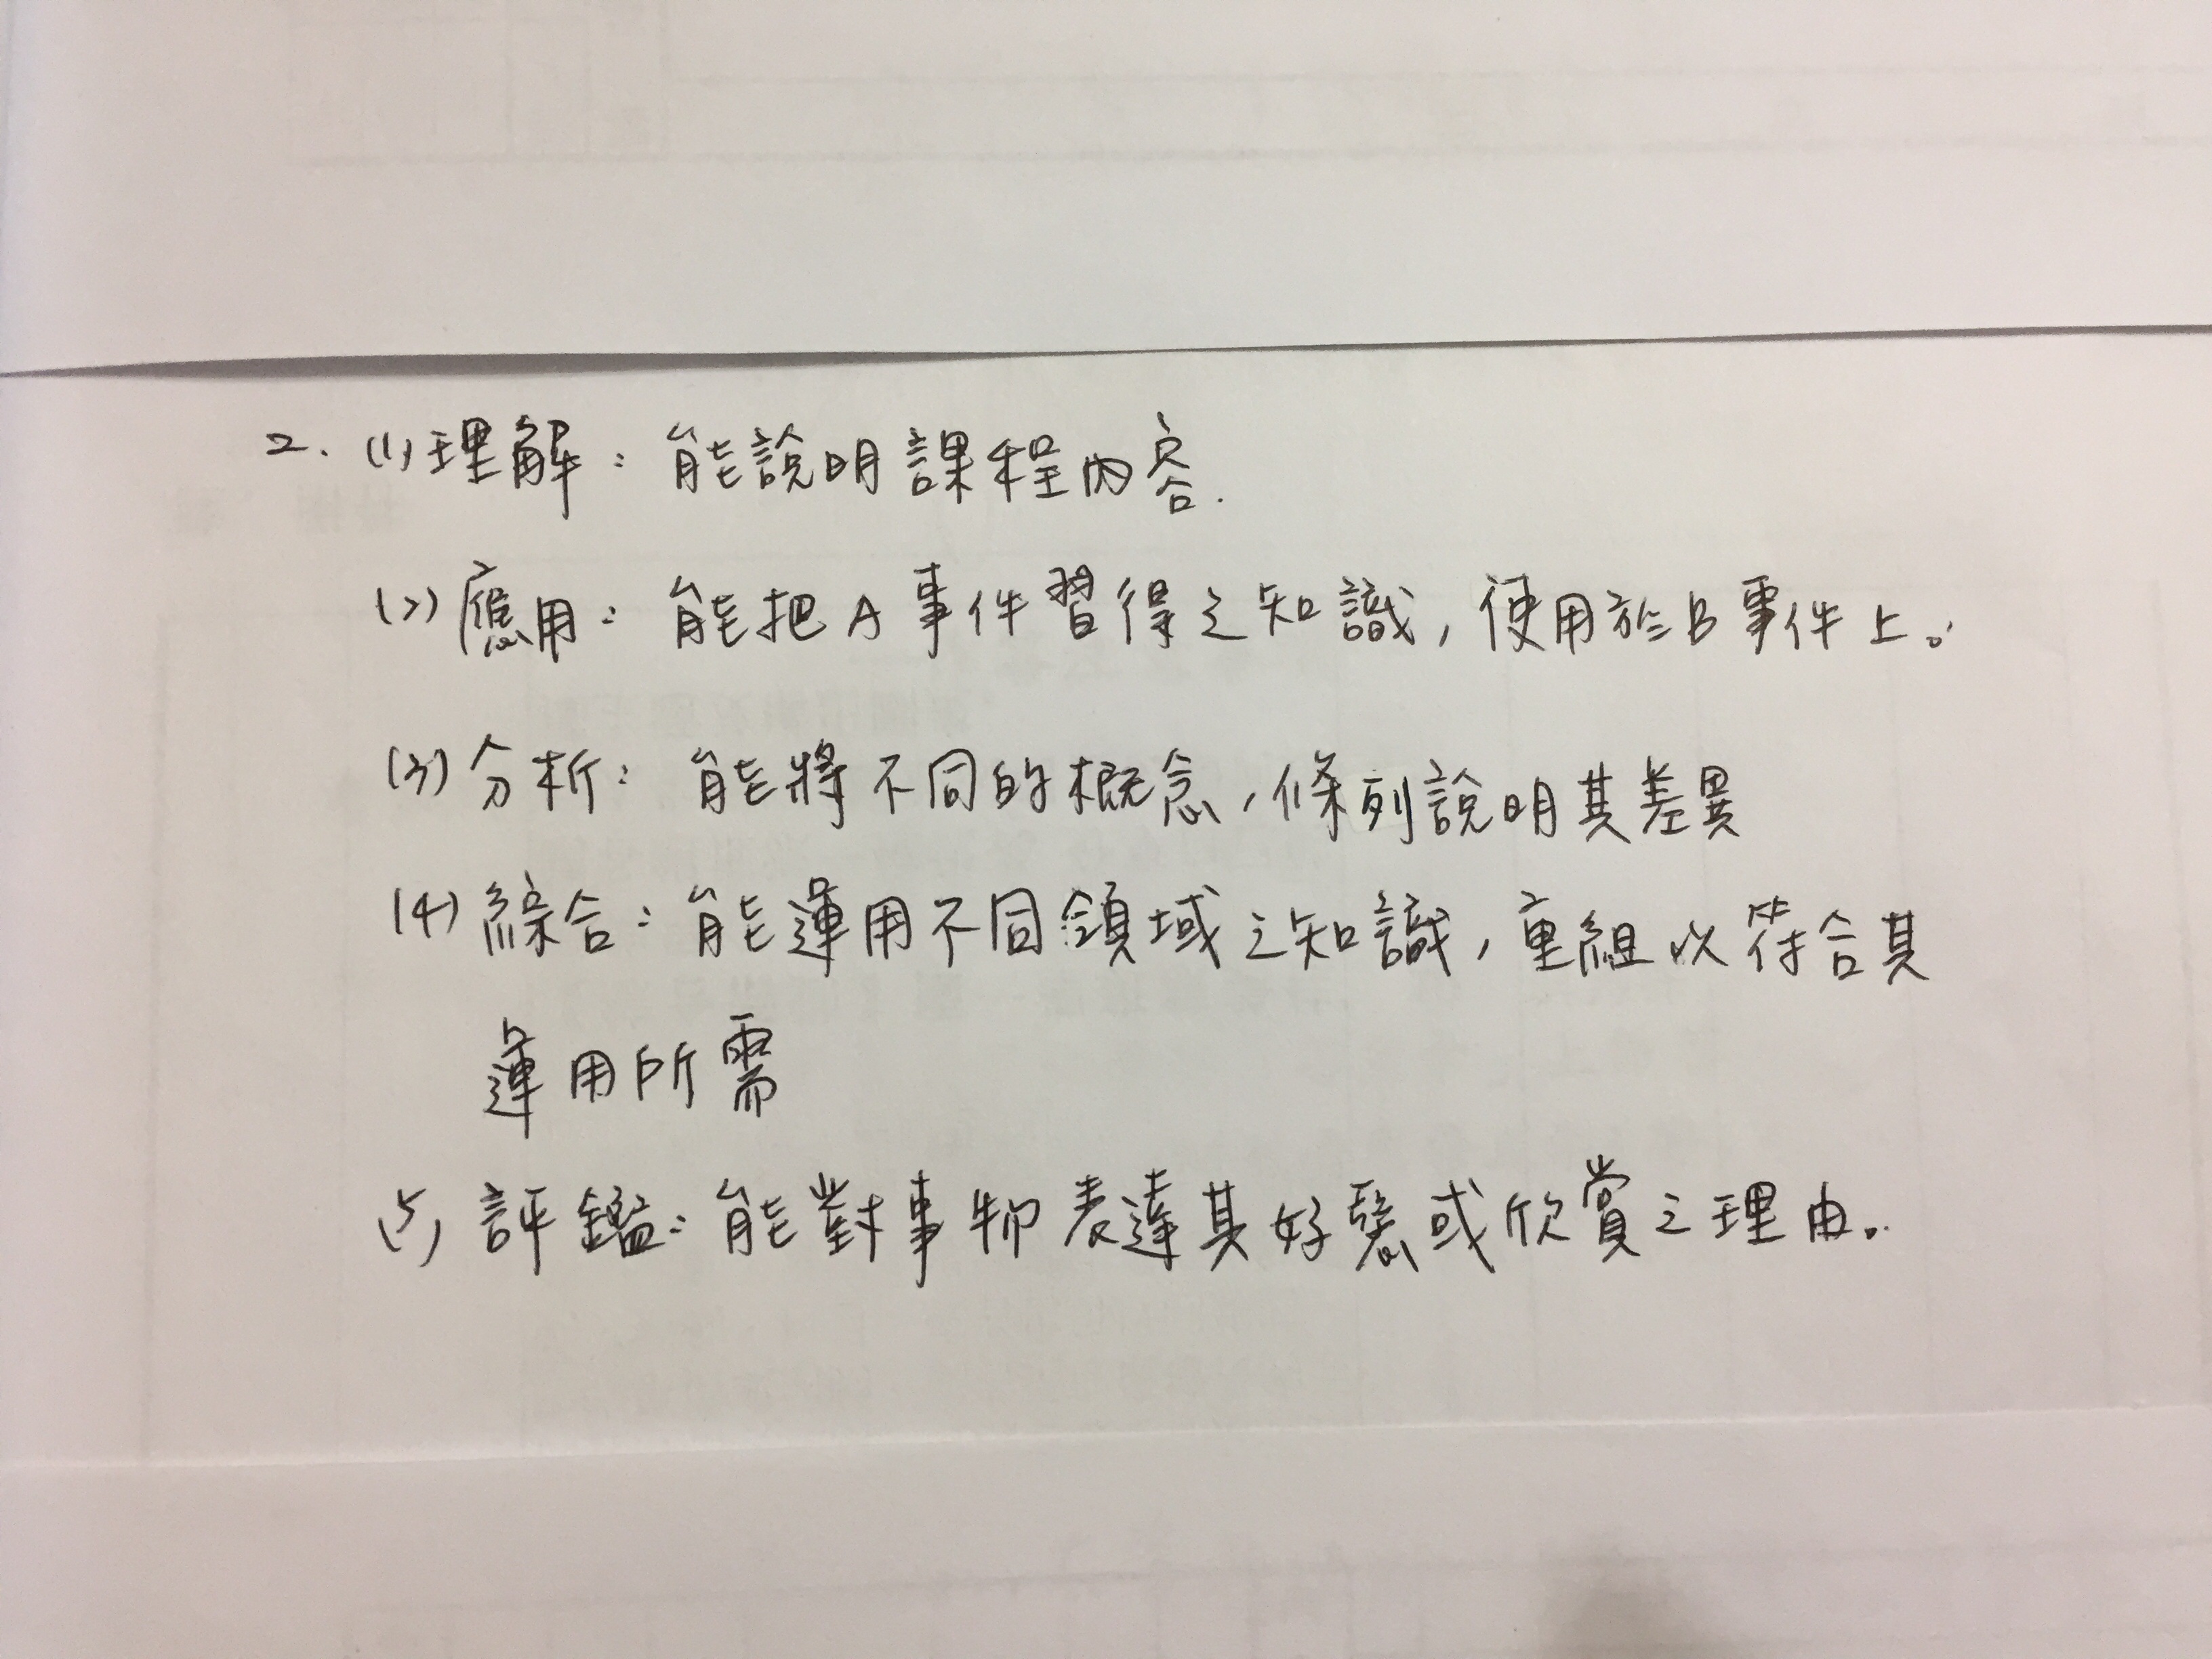 2. (1) 理解：能說明課程內容.
(2) 應用：能把A事件習得之知識，使用於B事件上。
(3) 分析：能將不同的概念，條列說明其差異
(4) 綜合：能運用不同領域之知識，重組以符合其
運用所需
(5) 評鑑：能對事物表達其好惡或欣賞之理由。